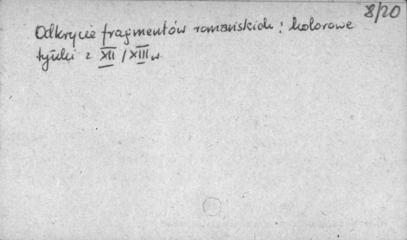 8/20
Odkrycie fragmentów romańskich : kolorowe
tynki z XII / XIII w